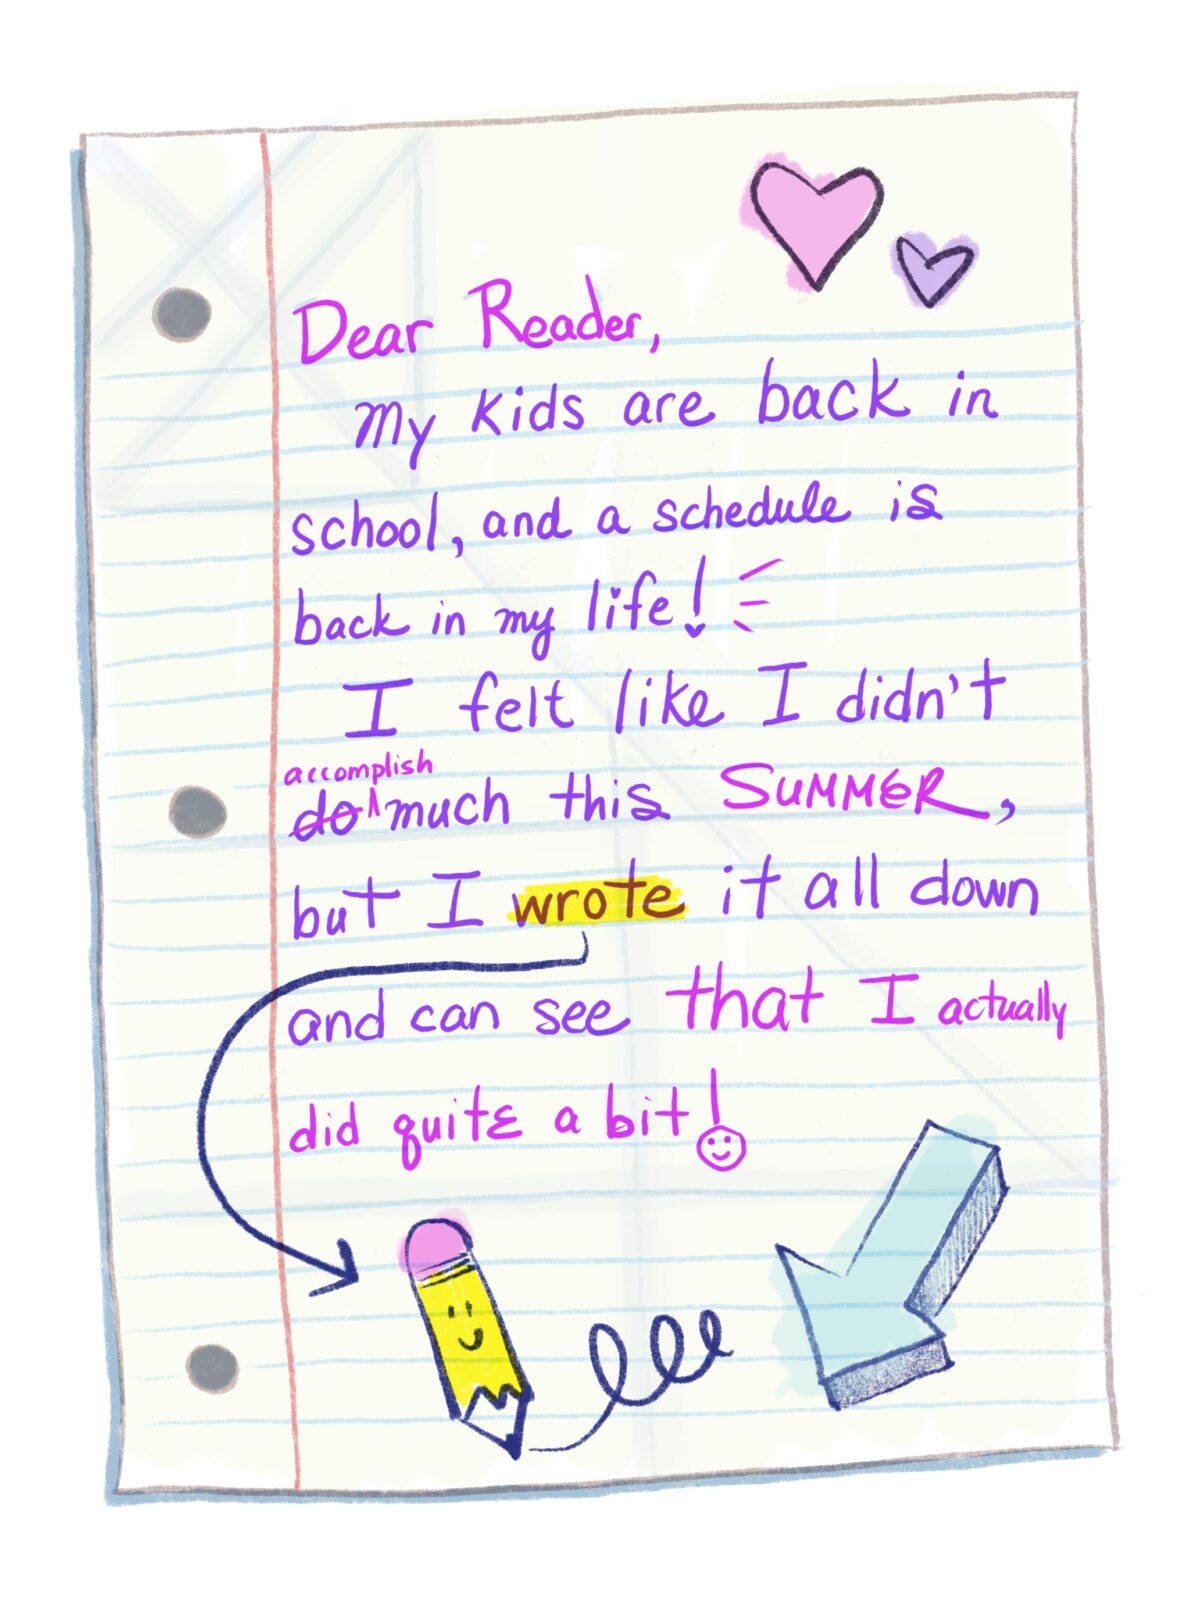 Dear Reader,
My kids are back in
school, and a schedule is
back in my life!
I felt like I didn't
accomplish
do much this SUMMER,
but I wrote it all down
and can see that I actually
did quite a bit!